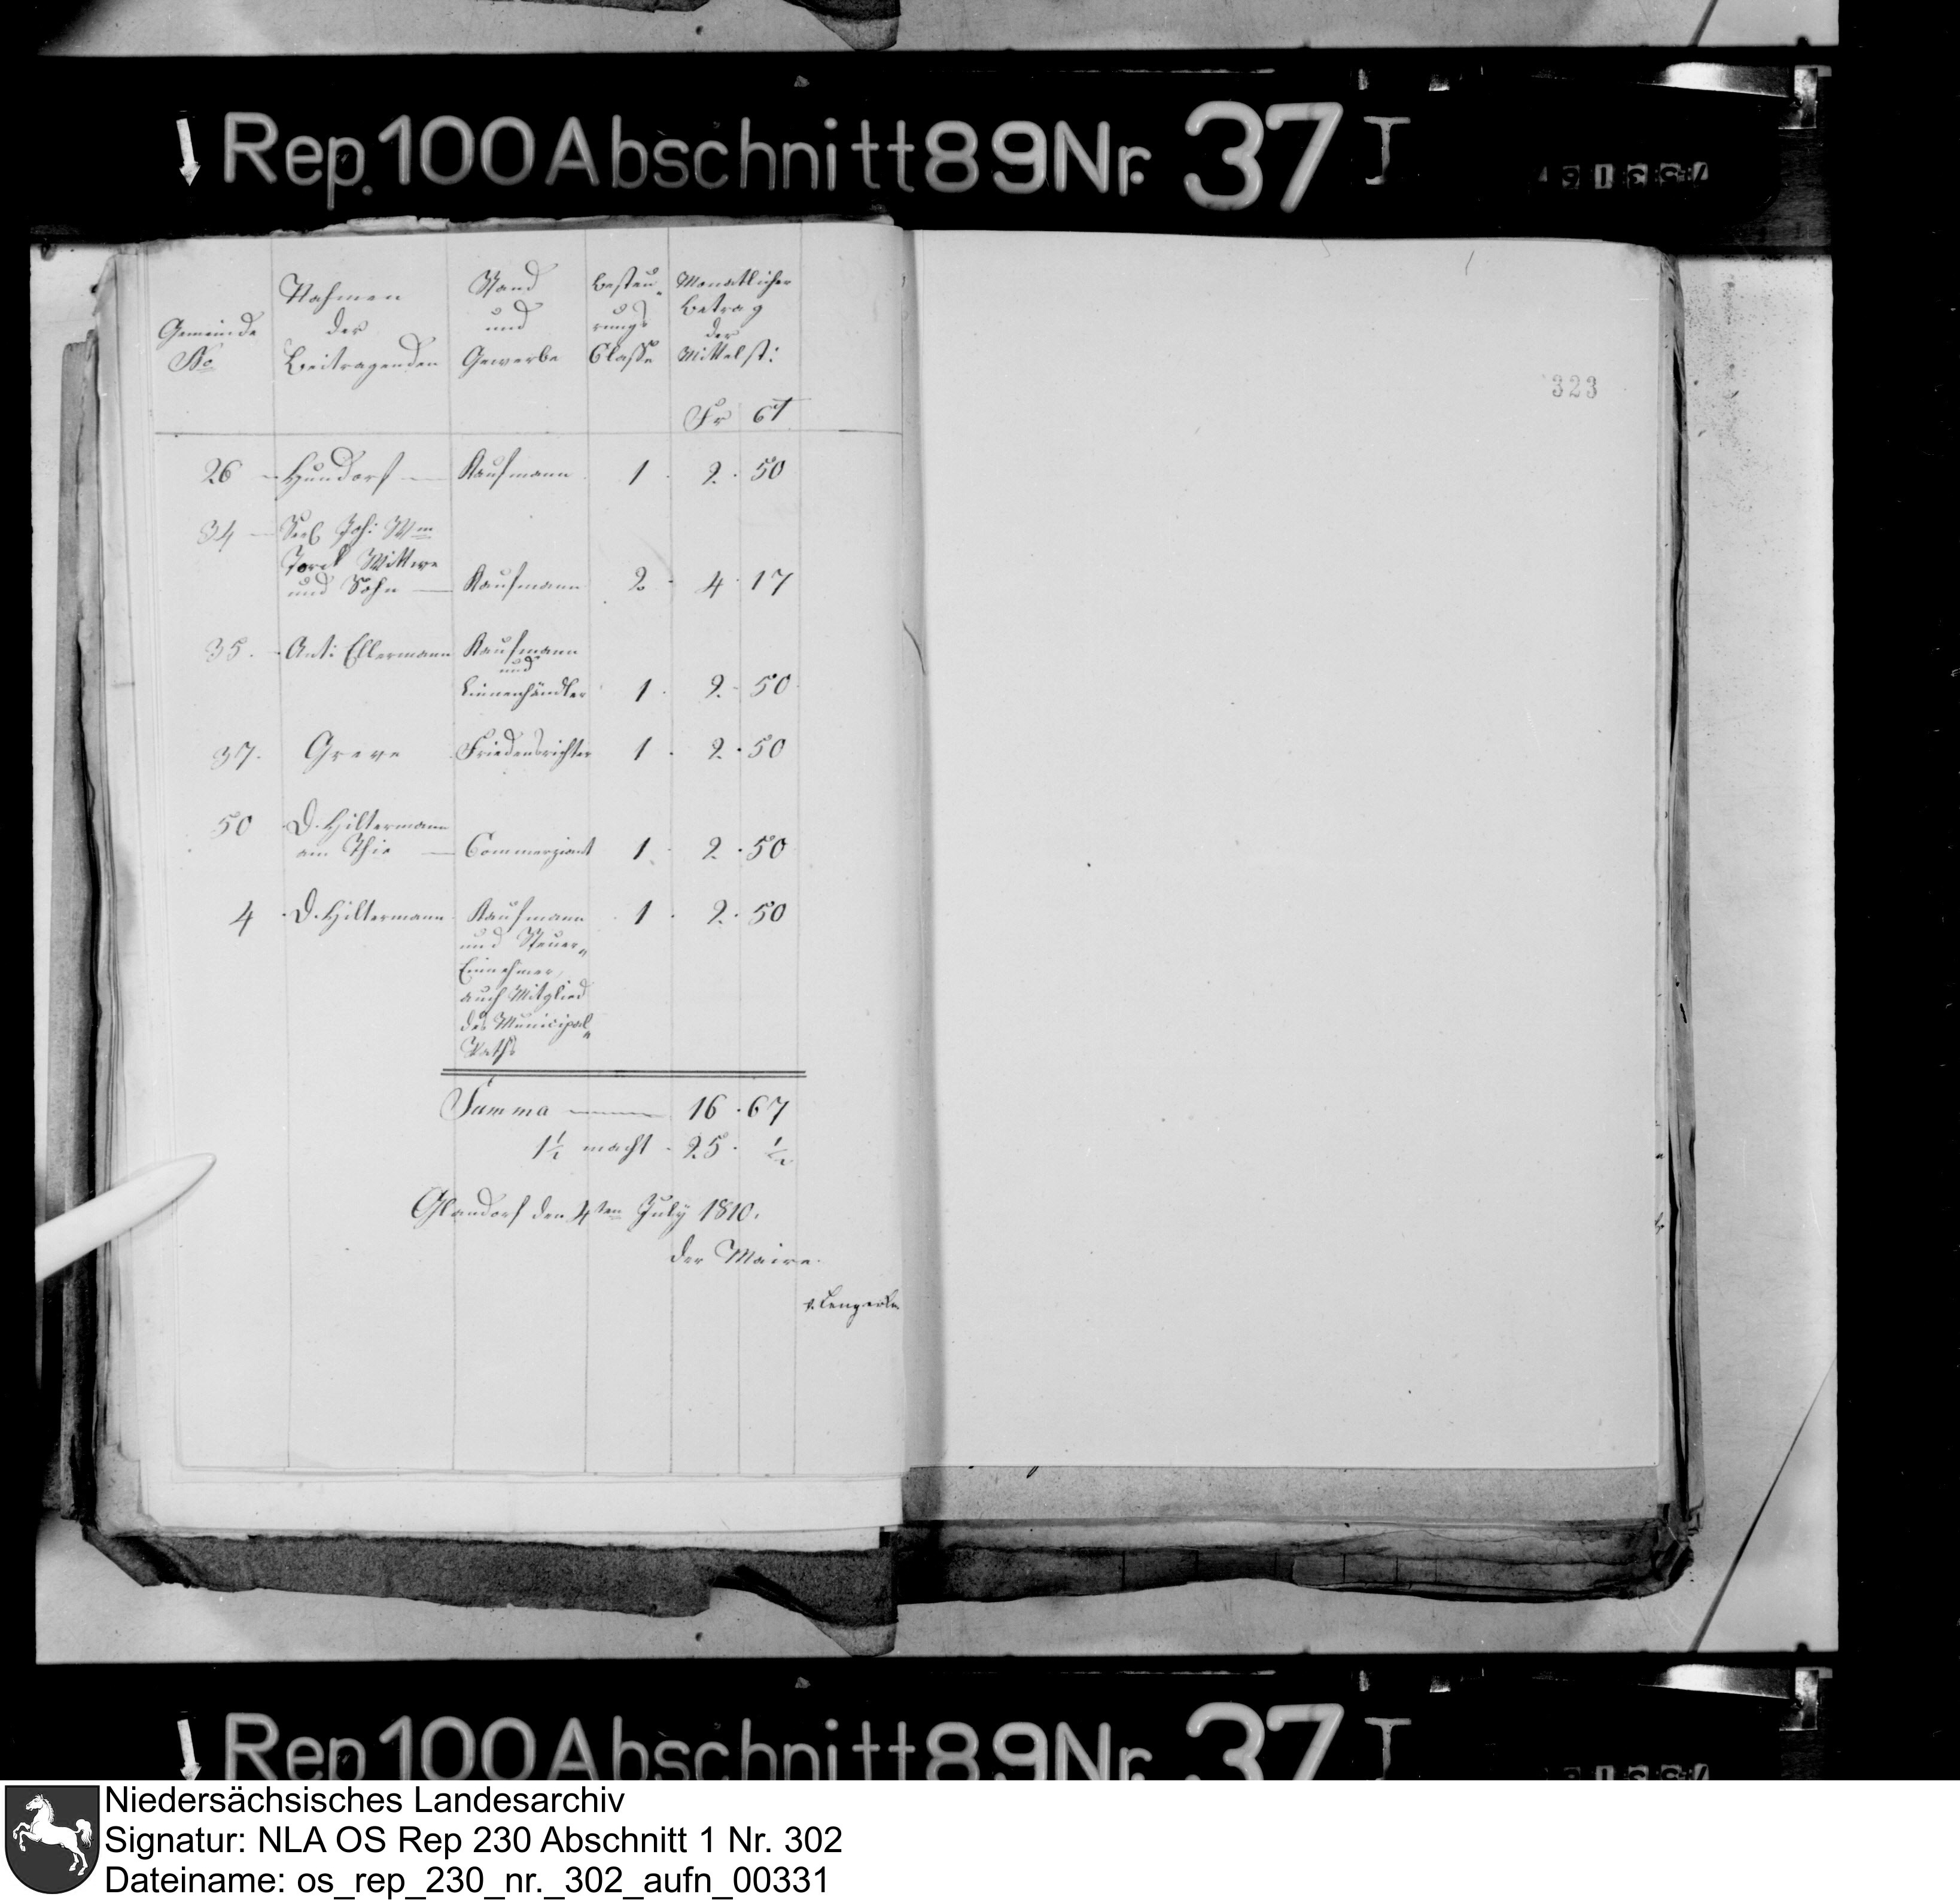 Rep. 100 Abschnitt 89 Nr. 37 I
Gemeinde
No
Nahmen
der
Beitragenden
Stand
und
Gewerbe
Besteu-
rungs
Classe
Monatlicher
Betrag
der
Mittelst:
Fr Ct
323
26 Hundorf Kaufmann 1 2. 50
34 Seel. Joh: Wm
Jorck Wittwe
und Sohn Kaufmann 2 4. 17
35. Ant: Ellermann Kaufmann
und
Linnenhändler 1 2. 50
37. Greve Friedensrichter 1 2. 50
50 D. Hiltermann
am Thie Commerziant 1 2. 50
4 D. Hiltermann Kaufmann 1 2. 50
und Steuer-
Einnehmer,
auch Mitglied
des Municipal-
Raths
Summa 16. 67
1½ macht 25. ½
Glandorf den 4ten July 1810.
Der Maire
v. Lengerke
Rep 100 Abschnitt 89 Nr. 37 I
Niedersächsisches Landesarchiv
Signatur: NLA OS Rep 230 Abschnitt 1 Nr. 302
Dateiname: os_rep_230_nr._302_aufn_00331